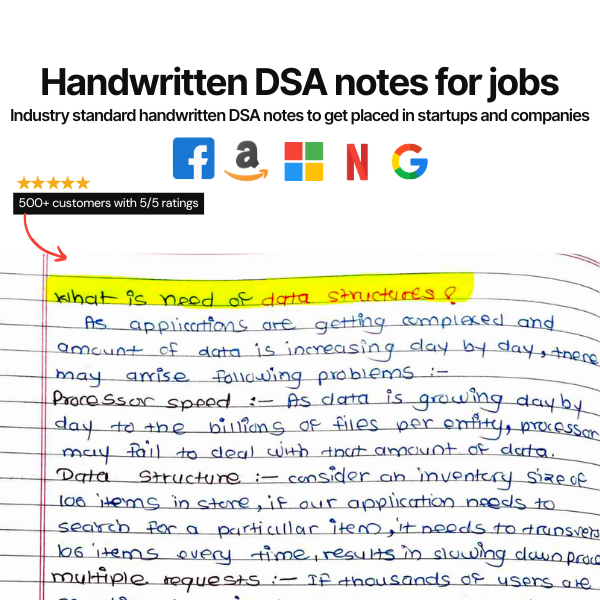 Handwritten DSA notes for jobs
Industry standard handwritten DSA notes to get placed in startups and companies
500+ customers with 5/5 ratings
What is need of data structures?
As applications are getting complexed and
amount of data is increasing day by day, there
may arrise following problems :-
Processor speed :- As data is growing day by
day to the billions of files per entity, processor
may fail to deal with that amount of data.
Data Structure :- consider an inventory size of
106 items in store, if our application needs to
search for a particullar item, it needs to transvers
106 items every time, results in slowing down proc
multiple requests :- If thousands of users are